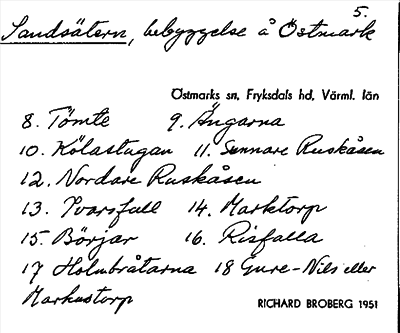 5.
Sandsätern, bebyggelse å Östmark
Östmarks sn, Fryksdals hd, Värml. län
8. Tömte 9. Ängarna
10. Kölastugan 11. Sunnare Ruskåsen
12. Nordare Ruskåsen
13. Ivarsfall 14. Marktorp
15. Börjar 16. Risfalla
17 Holmbråtarna 18 Gure-Nils eller
Markustorp
RICHARD BROBERG 1951